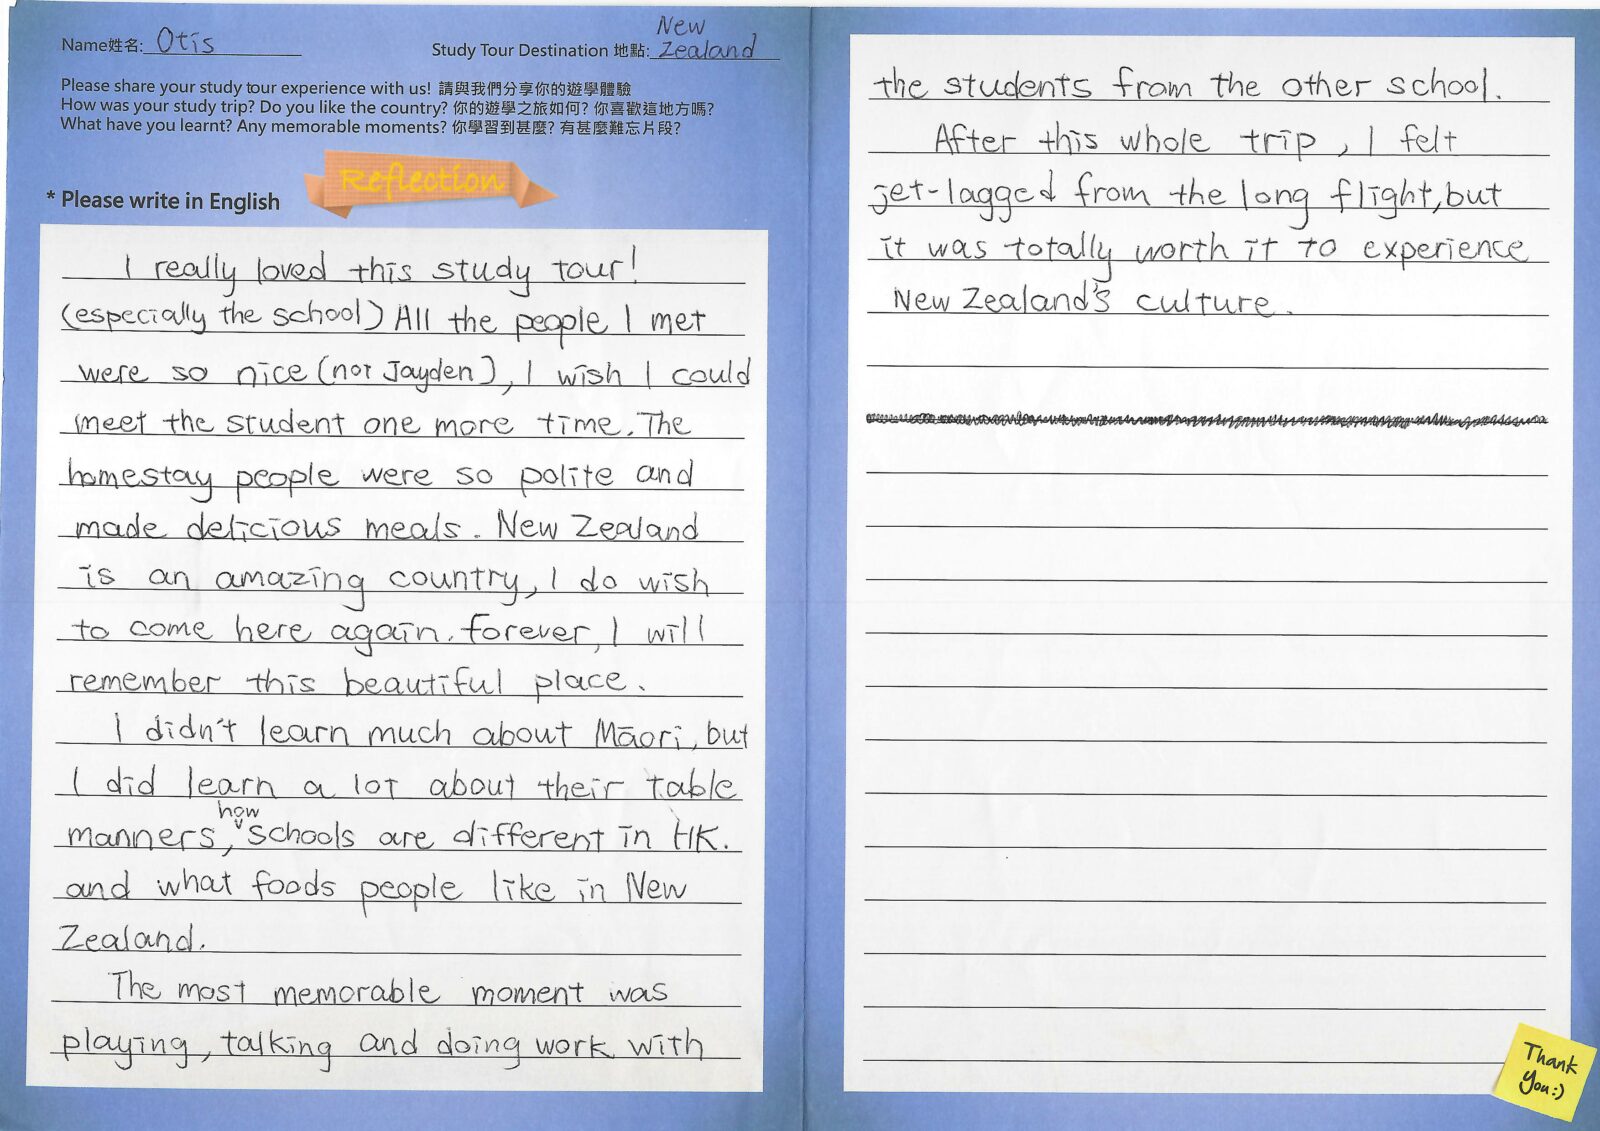 Name姓名: Otis
Study Tour Destination 地點: New Zealand
Please share your study tour experience with us! 請與我們分享你的遊學體驗
How was your study trip? Do you like the country? 你的遊學之旅如何? 你喜歡這地方嗎?
What have you learnt? Any memorable moments? 你學習到甚麼? 有甚麼難忘片段?
Reflection
* Please write in English
I really loved this study tour!
(especially the school) All the people I met
were so nice (not Jayden), I wish I could
meet the student one more time. The
homestay people were so polite and
made delicious meals. New Zealand
is an amazing country, I do wish
to come here again. forever, I will
remember this beautiful place.
I didn't learn much about Māori, but
I did learn a lot about their table
manners, how schools are different in HK.
and what foods people like in New
Zealand.
The most memorable moment was
playing, talking and doing work with
the students from the other school.
After this whole trip, I felt
jet-lagged from the long flight, but
it was totally worth it to experience
New Zealand's culture.
Thank
You:)